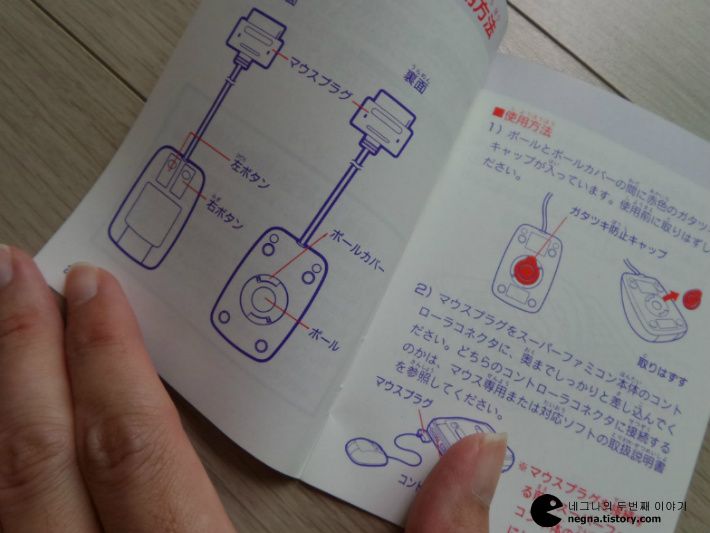 方法
面
マウスプラグ
裏面
左ボタン
右ボタン
ボールカバー
ボール
■使用方法
1）ボールとボールカバーの間に赤色のガタツキ
キャップが入っています。使用前に取りはずし
ださい。
ガタツキ防止キャップ
取りはずす
2）マウスプラグをスーパーファミコン本体のコント
ローラコネクタに、奥までしっかりと差し込んでく
ださい。どちらのコントローラコネクタに接続する
のかは、マウス専用または対応ソフトの取扱説明書
を参照してください。
マウスプラグ
コント
※マウスプラグ
네그나의 두번째 이야기
negna.tistory.com